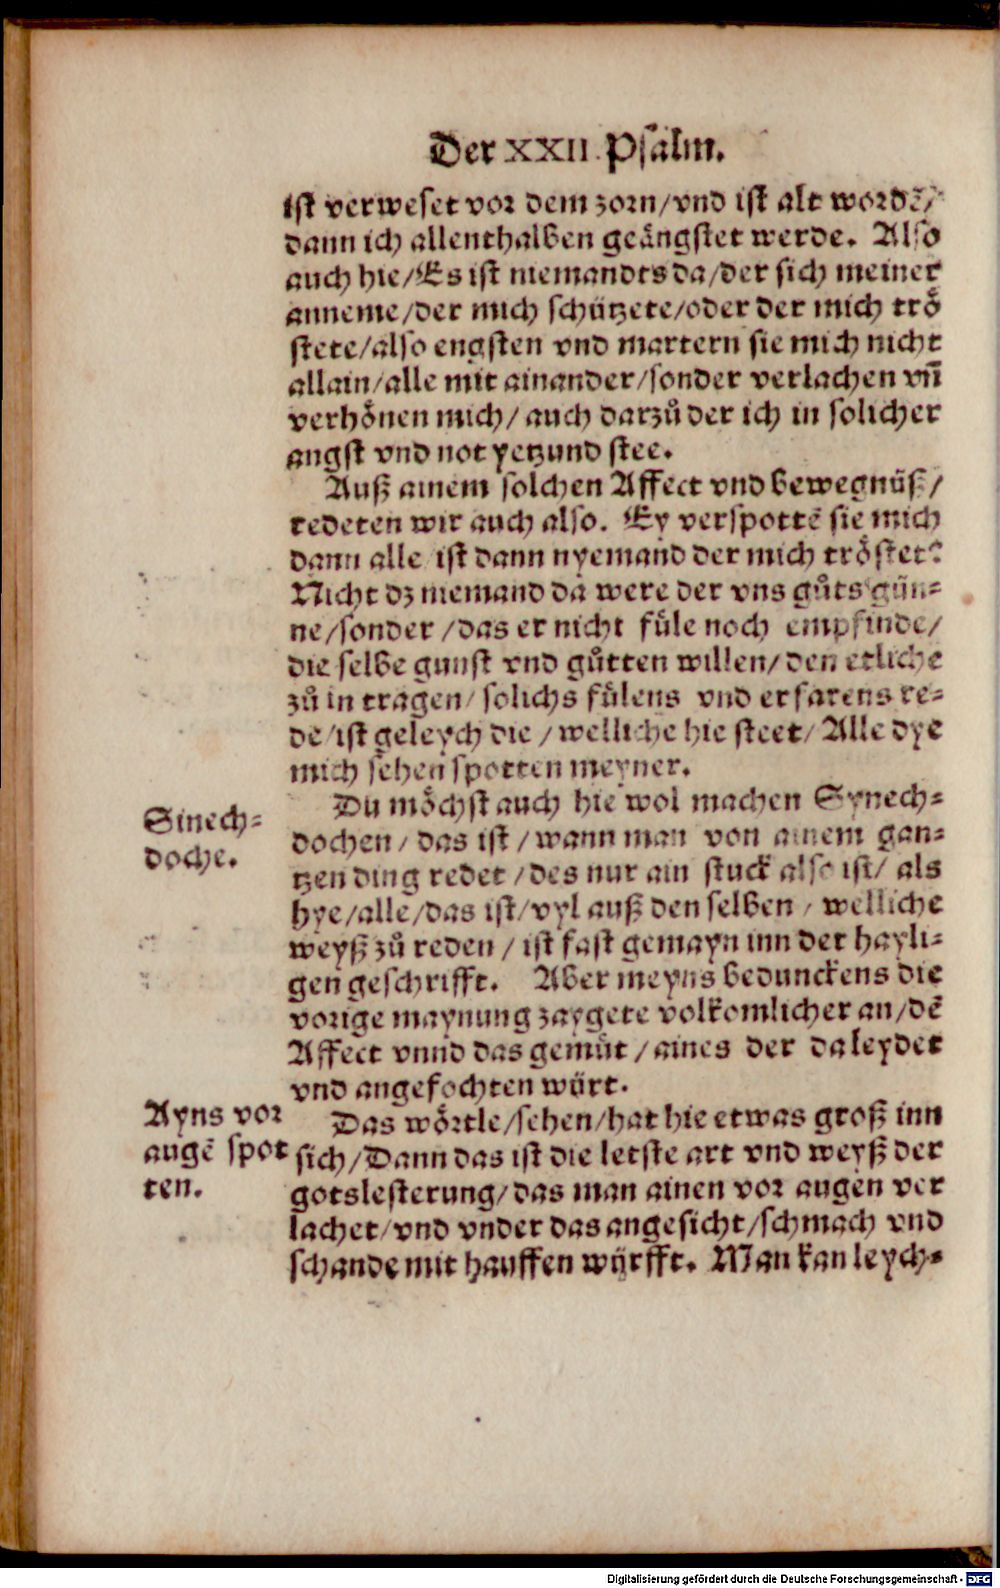 Der XXII. Psalm.
ist verweset vor dem zorn/vnd ist alt wordē/
dann ich allenthalben geängstet werde. Also
auch hie/Es ist niemandts da/der sich meiner
anneme/der mich schützete/oder der mich trö
stete/also engsten vnd martern sie mich nicht
allain/alle mit ainander/sonder verlachen vñ
verhönen mich/auch darzů der ich in solicher
angst vnd not yetzund stee.
Auß ainem solchen Affect vnd bewegnüß/
redeten wir auch also. Ey verspottē sie mich
dann alle/ist dann nyemand der mich tröstet?
Nicht dz niemand da were der vns gůts gün-
ne/sonder/das er nicht füle noch empfinde/
die selbe gunst vnd gůtten willen/den etliche
zů in tragen/solichs fülens vnd erfarens re-
de/ist geleych die/welliche hie steet/Alle dye
mich sehen spotten meyner.
Du möchst auch hie wol machen Synech-
dochen/das ist/wann man von ainem gan-
tzen ding redet/des nur ain stuck also ist/als
hye/alle/das ist/vyl auß den selben/welliche
weyß zů reden/ist fast gemayn inn der hayli-
gen geschrifft. Aber meyns bedunckens die
vorige maynung zaygete volkomlicher an/dē
Affect vnnd das gemüt/aines der da leydet
vnd angefochten würt.
Das wörtle/sehen/hat hie etwas groß inn
sich/Dann das ist die letste art vnd weyß der
gotslesterung/das man ainen vor augen ver
lachet/vnd vnder das angesicht/schmach vnd
schande mit hauffen wyrfft. Man kan leych-
Sinech-
doche.
Ayns vor
augē spot
ten.
Digitalisierung gefördert durch die Deutsche Forschungsgemeinschaft - DFG